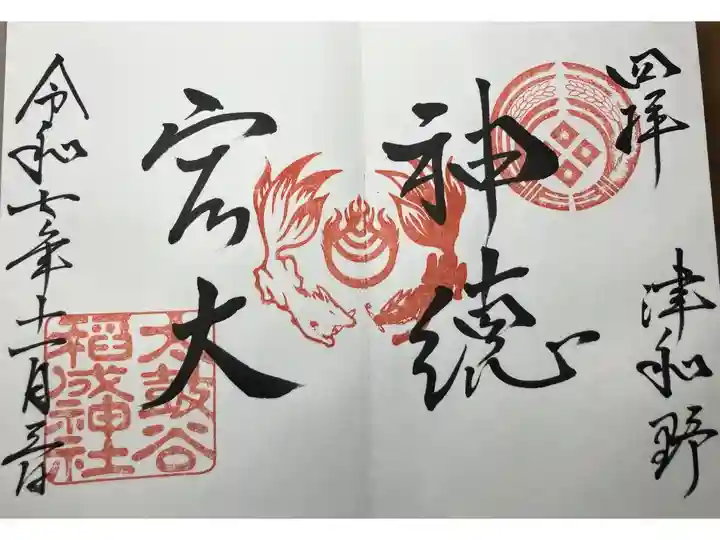 四拝
津和野
神徳
宏大
太鼓谷
稲成神社
令和七年十一月